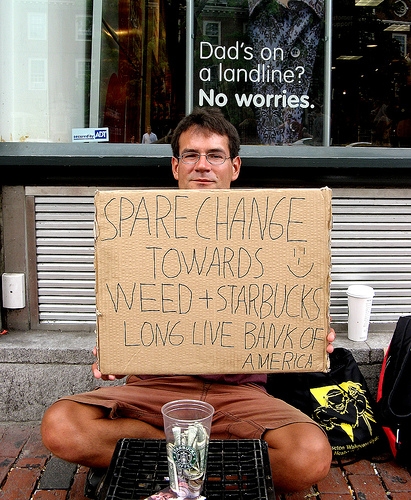 Dad's on
a landline?
No worries.
ADT
SPARE CHANGE
TOWARDS
WEED + STARBUCKS
LONG LIVE BANK OF
AMERICA